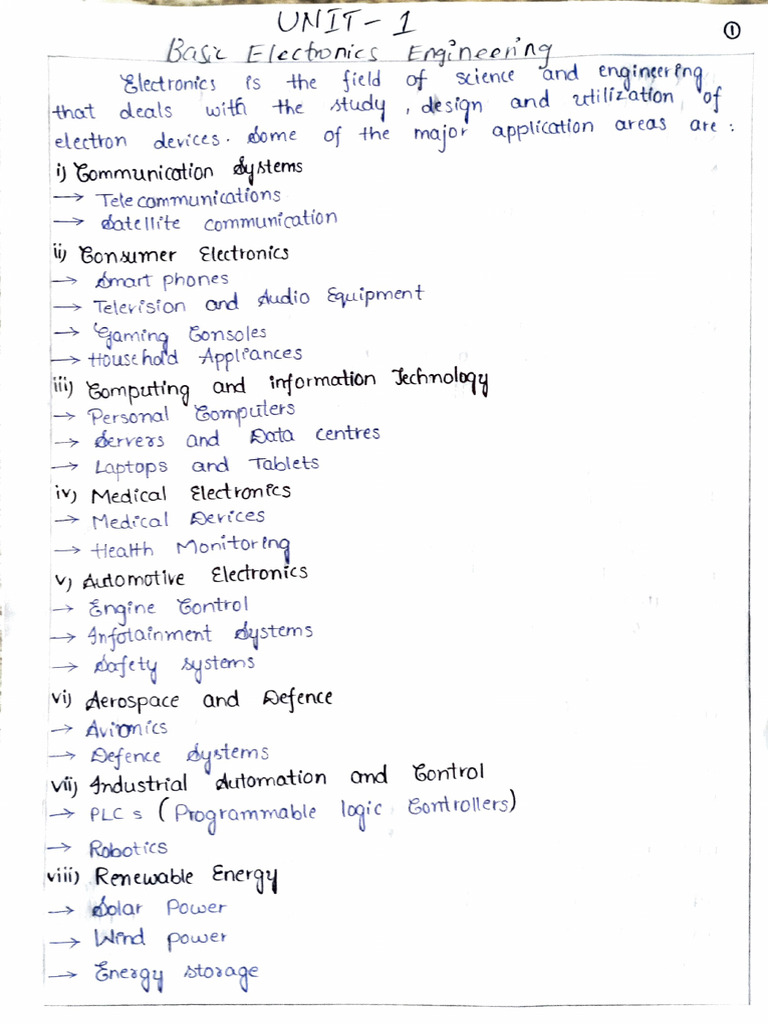 UNIT-1
①
Basic Electronics Engineering
Electronics is the field of science and engineering
that deals with the study, design and utilization of
electron devices. Some of the major application areas are:
i) Communication Systems
→ Telecommunications
→ Satellite communication
ii) Consumer Electronics
→ Smart phones
→ Television and Audio Equipment
→ Gaming Consoles
→ Household Appliances
iii) Computing and information Technology
→ Personal Computers
→ Servers and Data centres
→ Laptops and Tablets
iv) Medical Electronics
→ Medical Devices
→ Health Monitoring
v) Automotive Electronics
→ Engine Control
→ Infotainment Systems
→ Safety systems
vi) Aerospace and Defence
→ Avionics
→ Defence Systems
vii) Industrial Automation and Control
→ PLC s (Programmable logic Controllers)
→ Robotics
viii) Renewable Energy
→ Solar Power
→ Wind power
→ Energy storage